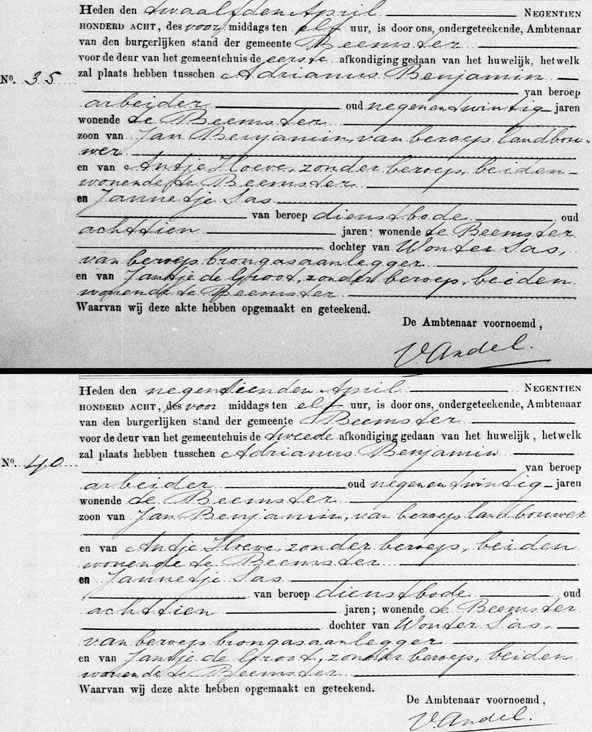 Heden den twaalfden April NEGENTIEN
HONDERD ACHT, des voor middags ten elf uur, is door ons, ondergeteekende, Ambtenaar
van den burgerlijken stand der gemeente Beemster
voor de deur van het gemeentehuis de eerste afkondiging gedaan van het huwelijk, hetwelk
No. 35 zal plaats hebben tusschen Adrianus Benjamin
van beroep
arbeider oud negenentwintig jaren
wonende te Beemster
zoon van Jan Benjamin, van beroep landbou-
wer
en van Antje Hoeve, zonder beroep, beiden
wonende te Beemster
en Jannetje Sas
van beroep dienstbode oud
achttien jaren; wonende te Beemster
dochter van Wouter Sas,
van beroep brongasaanlegger
en van Jantje de Groot, zonder beroep, beiden
wonende te Beemster
Waarvan wij deze akte hebben opgemaakt en geteekend.
De Ambtenaar voornoemd,
V. Andel.
Heden den negentienden April NEGENTIEN
HONDERD ACHT, des voor middags ten elf uur, is door ons, ondergeteekende, Ambtenaar
van den burgerlijken stand der gemeente Beemster
voor de deur van het gemeentehuis de tweede afkondiging gedaan van het huwelijk, hetwelk
No. 40 zal plaats hebben tusschen Adrianus Benjamin
van beroep
arbeider oud negenentwintig jaren
wonende te Beemster
zoon van Jan Benjamin, van beroep landbouwer
en van Antje Hoeve, zonder beroep, beiden
wonende te Beemster
en Jannetje Sas
van beroep dienstbode oud
achttien jaren; wonende te Beemster
dochter van Wouter Sas,
van beroep brongasaanlegger
en van Jantje de Groot, zonder beroep, beiden
wonende te Beemster
Waarvan wij deze akte hebben opgemaakt en geteekend.
De Ambtenaar voornoemd,
V. Andel.